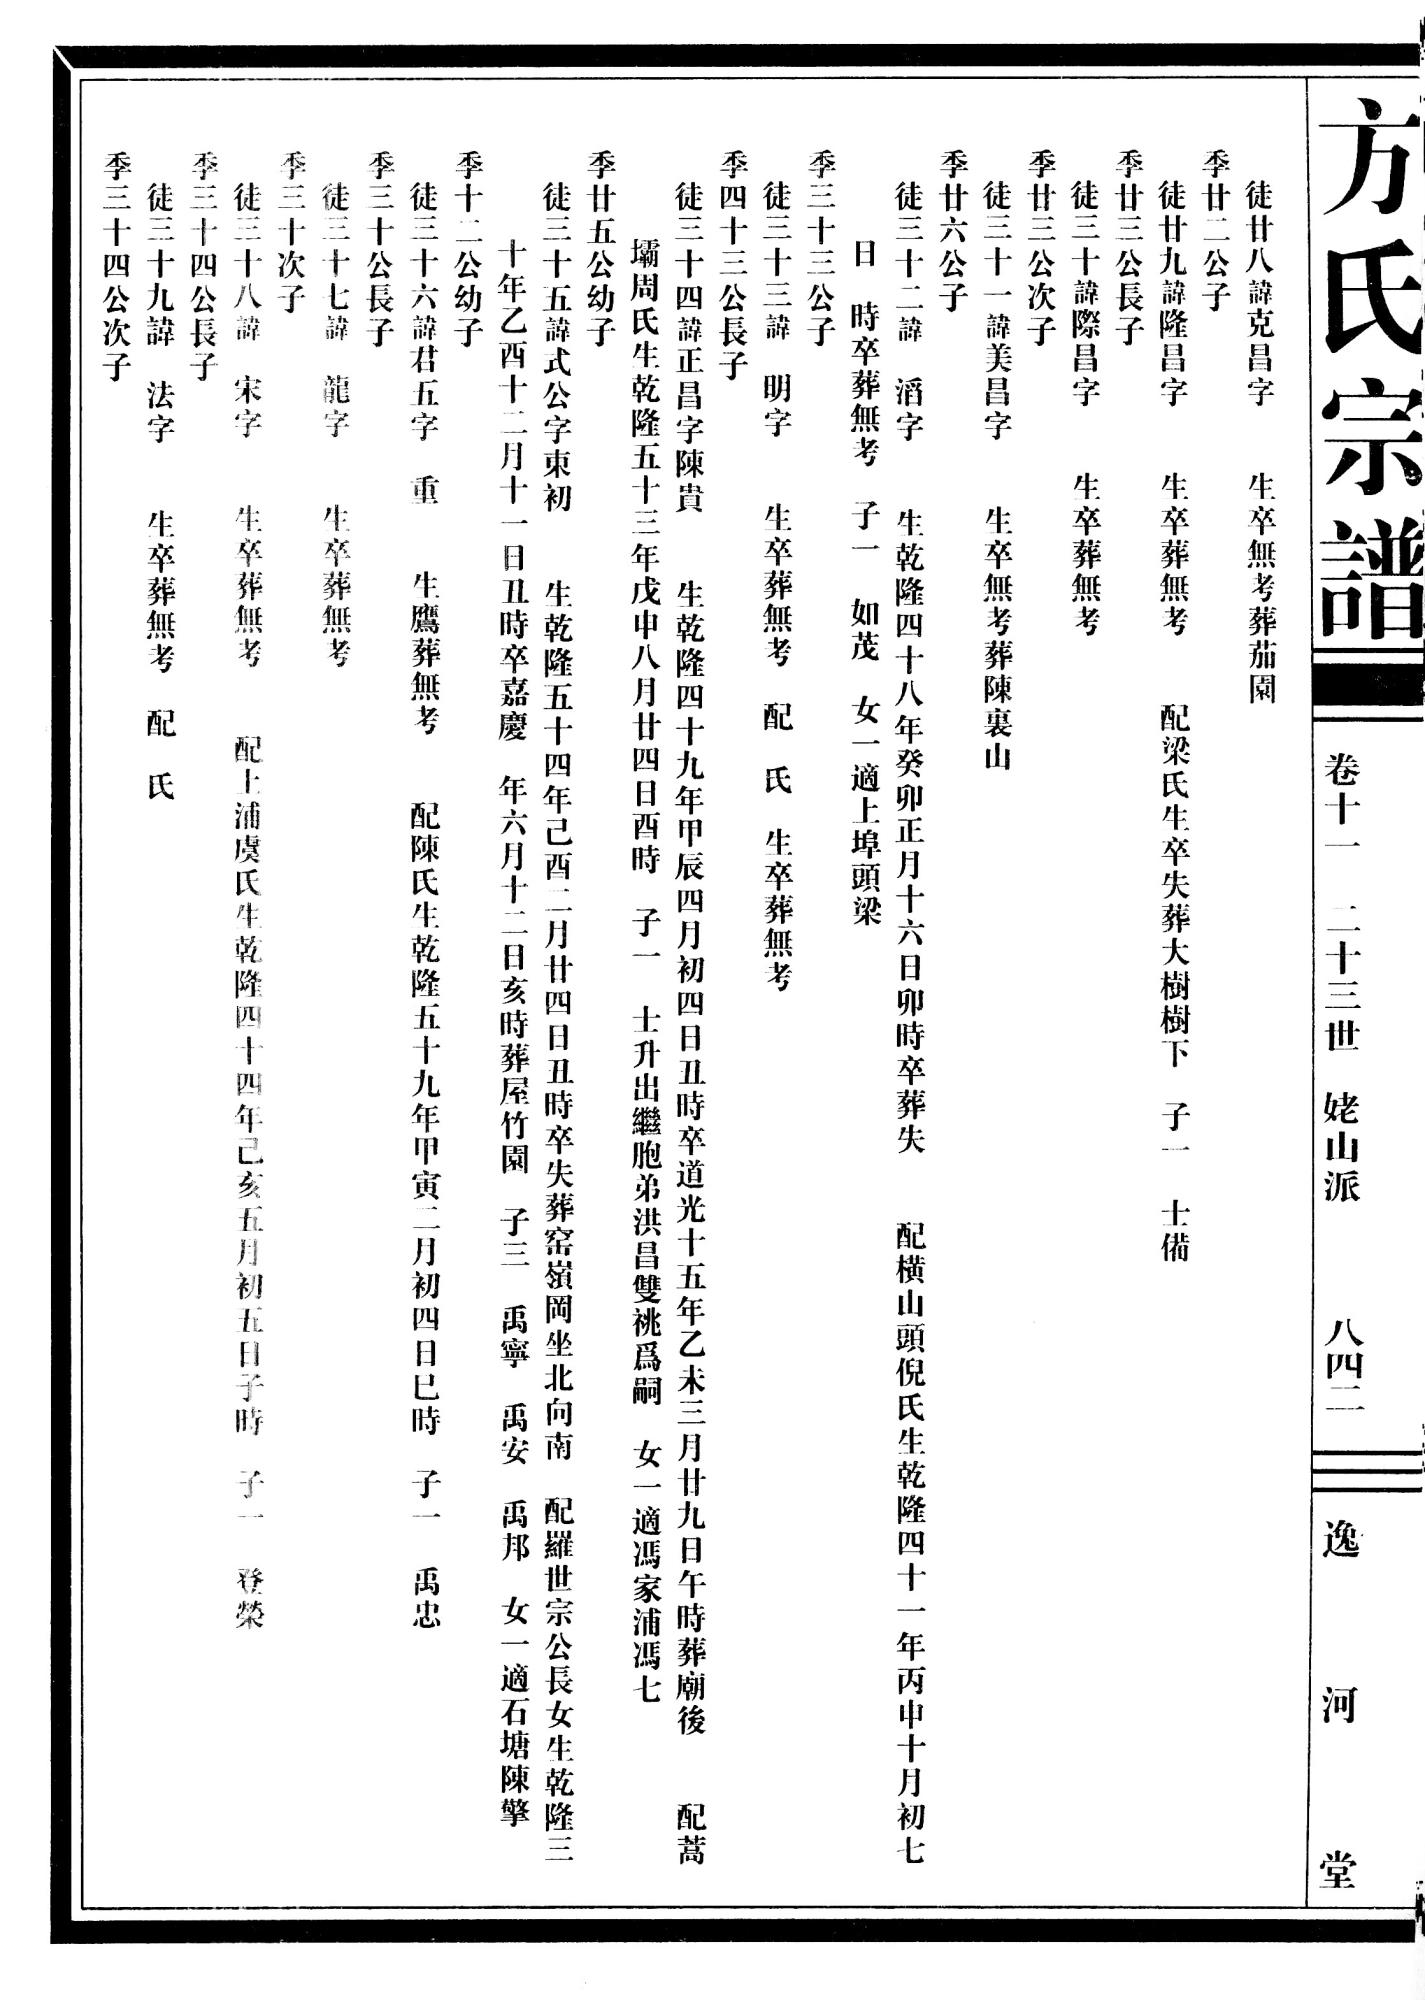 方氏宗譜
卷十一　二十三世　姥山派　八四二
逸河堂
徒廿八諱克昌字　生卒無考葬茄園
季廿二公子
徒廿九諱隆昌字　生卒葬無考　配梁氏生卒失葬大樹樹下　子一　士備
季廿三公長子
徒三十諱際昌字　生卒葬無考
季廿三公次子
徒三十一諱美昌字　生卒無考葬陳裏山
季廿六公子
徒三十二諱　滔字　生乾隆四十八年癸卯正月十六日卯時卒葬失　配橫山頭倪氏生乾隆四十一年丙申十月初七
日　時卒葬無考　子一　如茂　女一適上埠頭梁
季三十三公子
徒三十三諱　明字　生卒葬無考　配　氏　生卒葬無考
季四十三公長子
徒三十四諱正昌字陳貴　生乾隆四十九年甲辰四月初四日丑時卒道光十五年乙未三月廿九日午時葬廟後　配蒿
壩周氏生乾隆五十三年戊申八月廿四日酉時　子一　士升出繼胞弟洪昌雙祧爲嗣　女一適馮家浦馮七
季廿五公幼子
徒三十五諱式公字東初　生乾隆五十四年己酉二月廿四日丑時卒失葬窑嶺岡坐北向南　配羅世宗公長女生乾隆三
十年乙酉十二月十一日丑時卒嘉慶　年六月十二日亥時葬屋竹園　子三　禹寧　禹安　禹邦　女一適石塘陳擎
季十二公幼子
徒三十六諱君五字　重　生鷹葬無考　配陳氏生乾隆五十九年甲寅二月初四日巳時　子一　禹忠
季三十公長子
徒三十七諱　龍字　生卒葬無考
季三十次子
徒三十八諱　宋字　生卒葬無考　配上浦虞氏生乾隆四十四年己亥五月初五日子時　子一　登榮
季三十四公長子
徒三十九諱　法字　生卒葬無考　配　氏
季三十四公次子